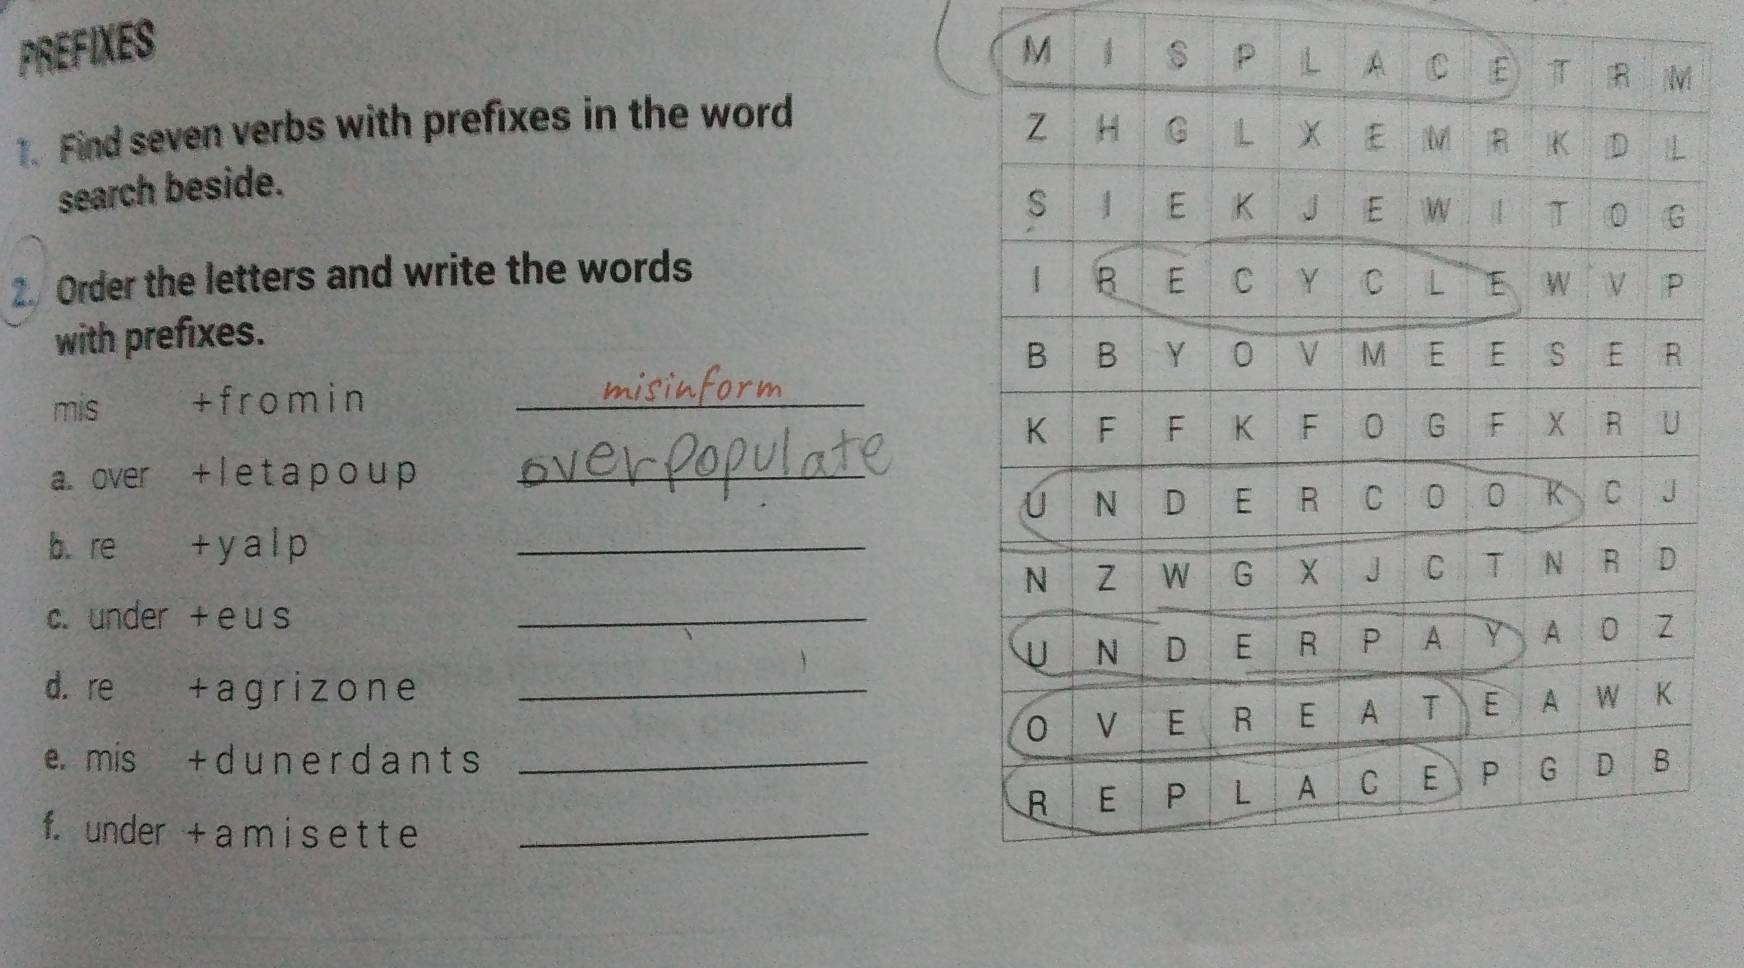 PREFIXES
1. Find seven verbs with prefixes in the word
search beside.
2. Order the letters and write the words
with prefixes.
mis +fromin misinform
a. over +letapoup overpopulate
b. re +yalp
c. under +eus
d. re +agrizone
e. mis +dunerdants
f. under +amisette
M I S P L A C E T R M
Z H G L X E M R K D L
S I E K J E W I T O G
I R E C Y C L E W V P
B B Y O V M E E S E R
K F F K F O G F X R U
U N D E R C O O K C J
N Z W G X J C T N R D
U N D E R P A Y A O Z
O V E R E A T E A W K
R E P L A C E P G D B